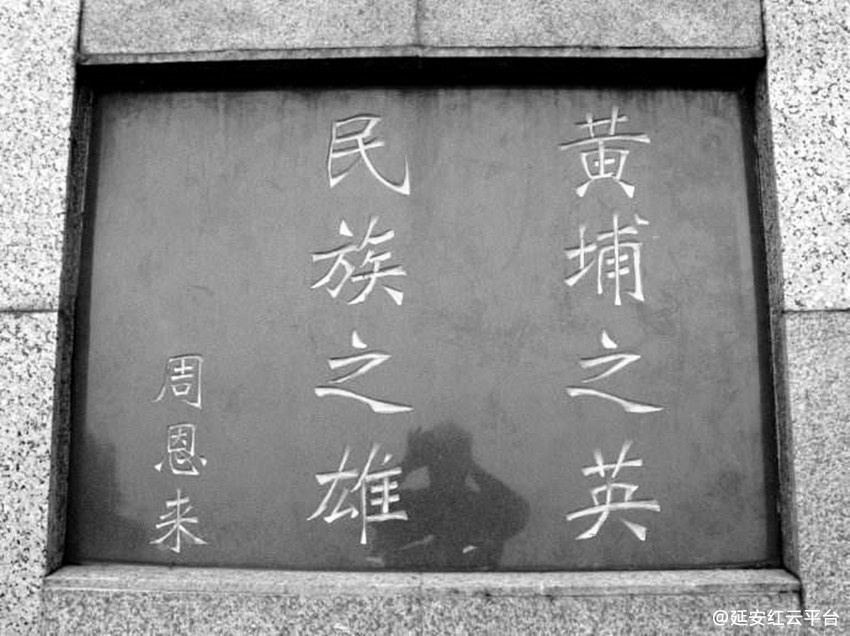 黄埔之英
民族之雄
周恩来
@延安红云平台